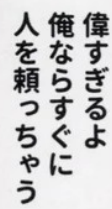 偉すぎるよ
俺ならすぐに
人を頼っちゃう